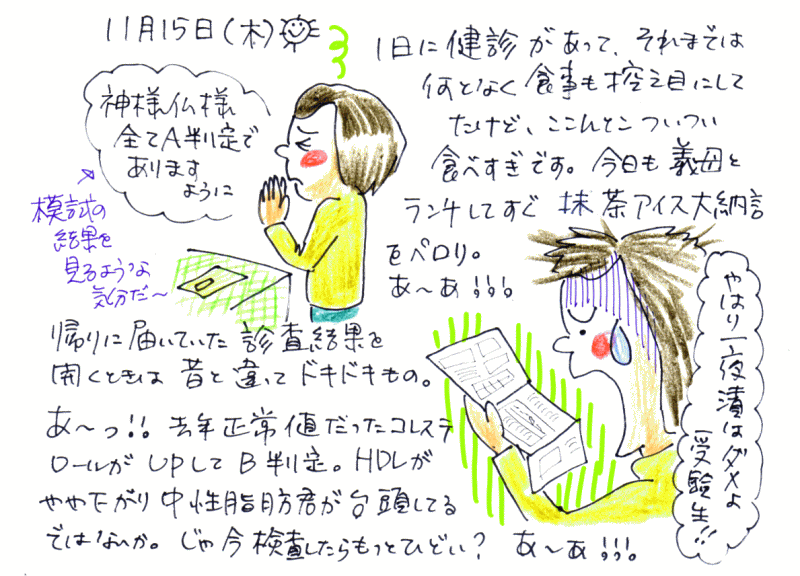 11月15日(木)
1日に健診があって、それまでは
何となく食事も控え目にして
たけど、ここんとこついつい
食べすぎです。今日も義母と
ランチしてすぐ抹茶アイス大納言
をペロリ。
あ〜あ!!!
神様仏様
全てA判定で
あります
ように
模試の
結果を
見るような
気分だ〜
帰りに届いていた診査結果を
開くときは昔と違ってドキドキもの。
あ〜っ!!去年正常値だったコレステ
ロールがUPしてB判定。HDLが
やや下がり中性脂肪君が台頭してる
ではないか。じゃ今検査したらもっとひどい?あ〜あ!!!
やはり一夜漬はダメよ
受験生!!